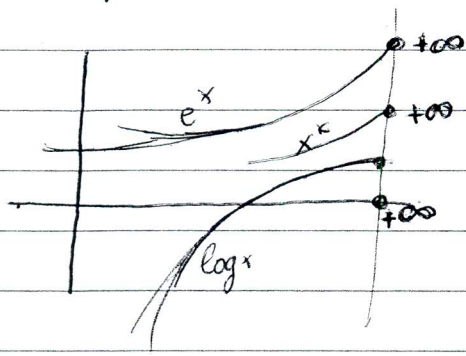 +∞
e^x
+∞
x^x
+∞
log x